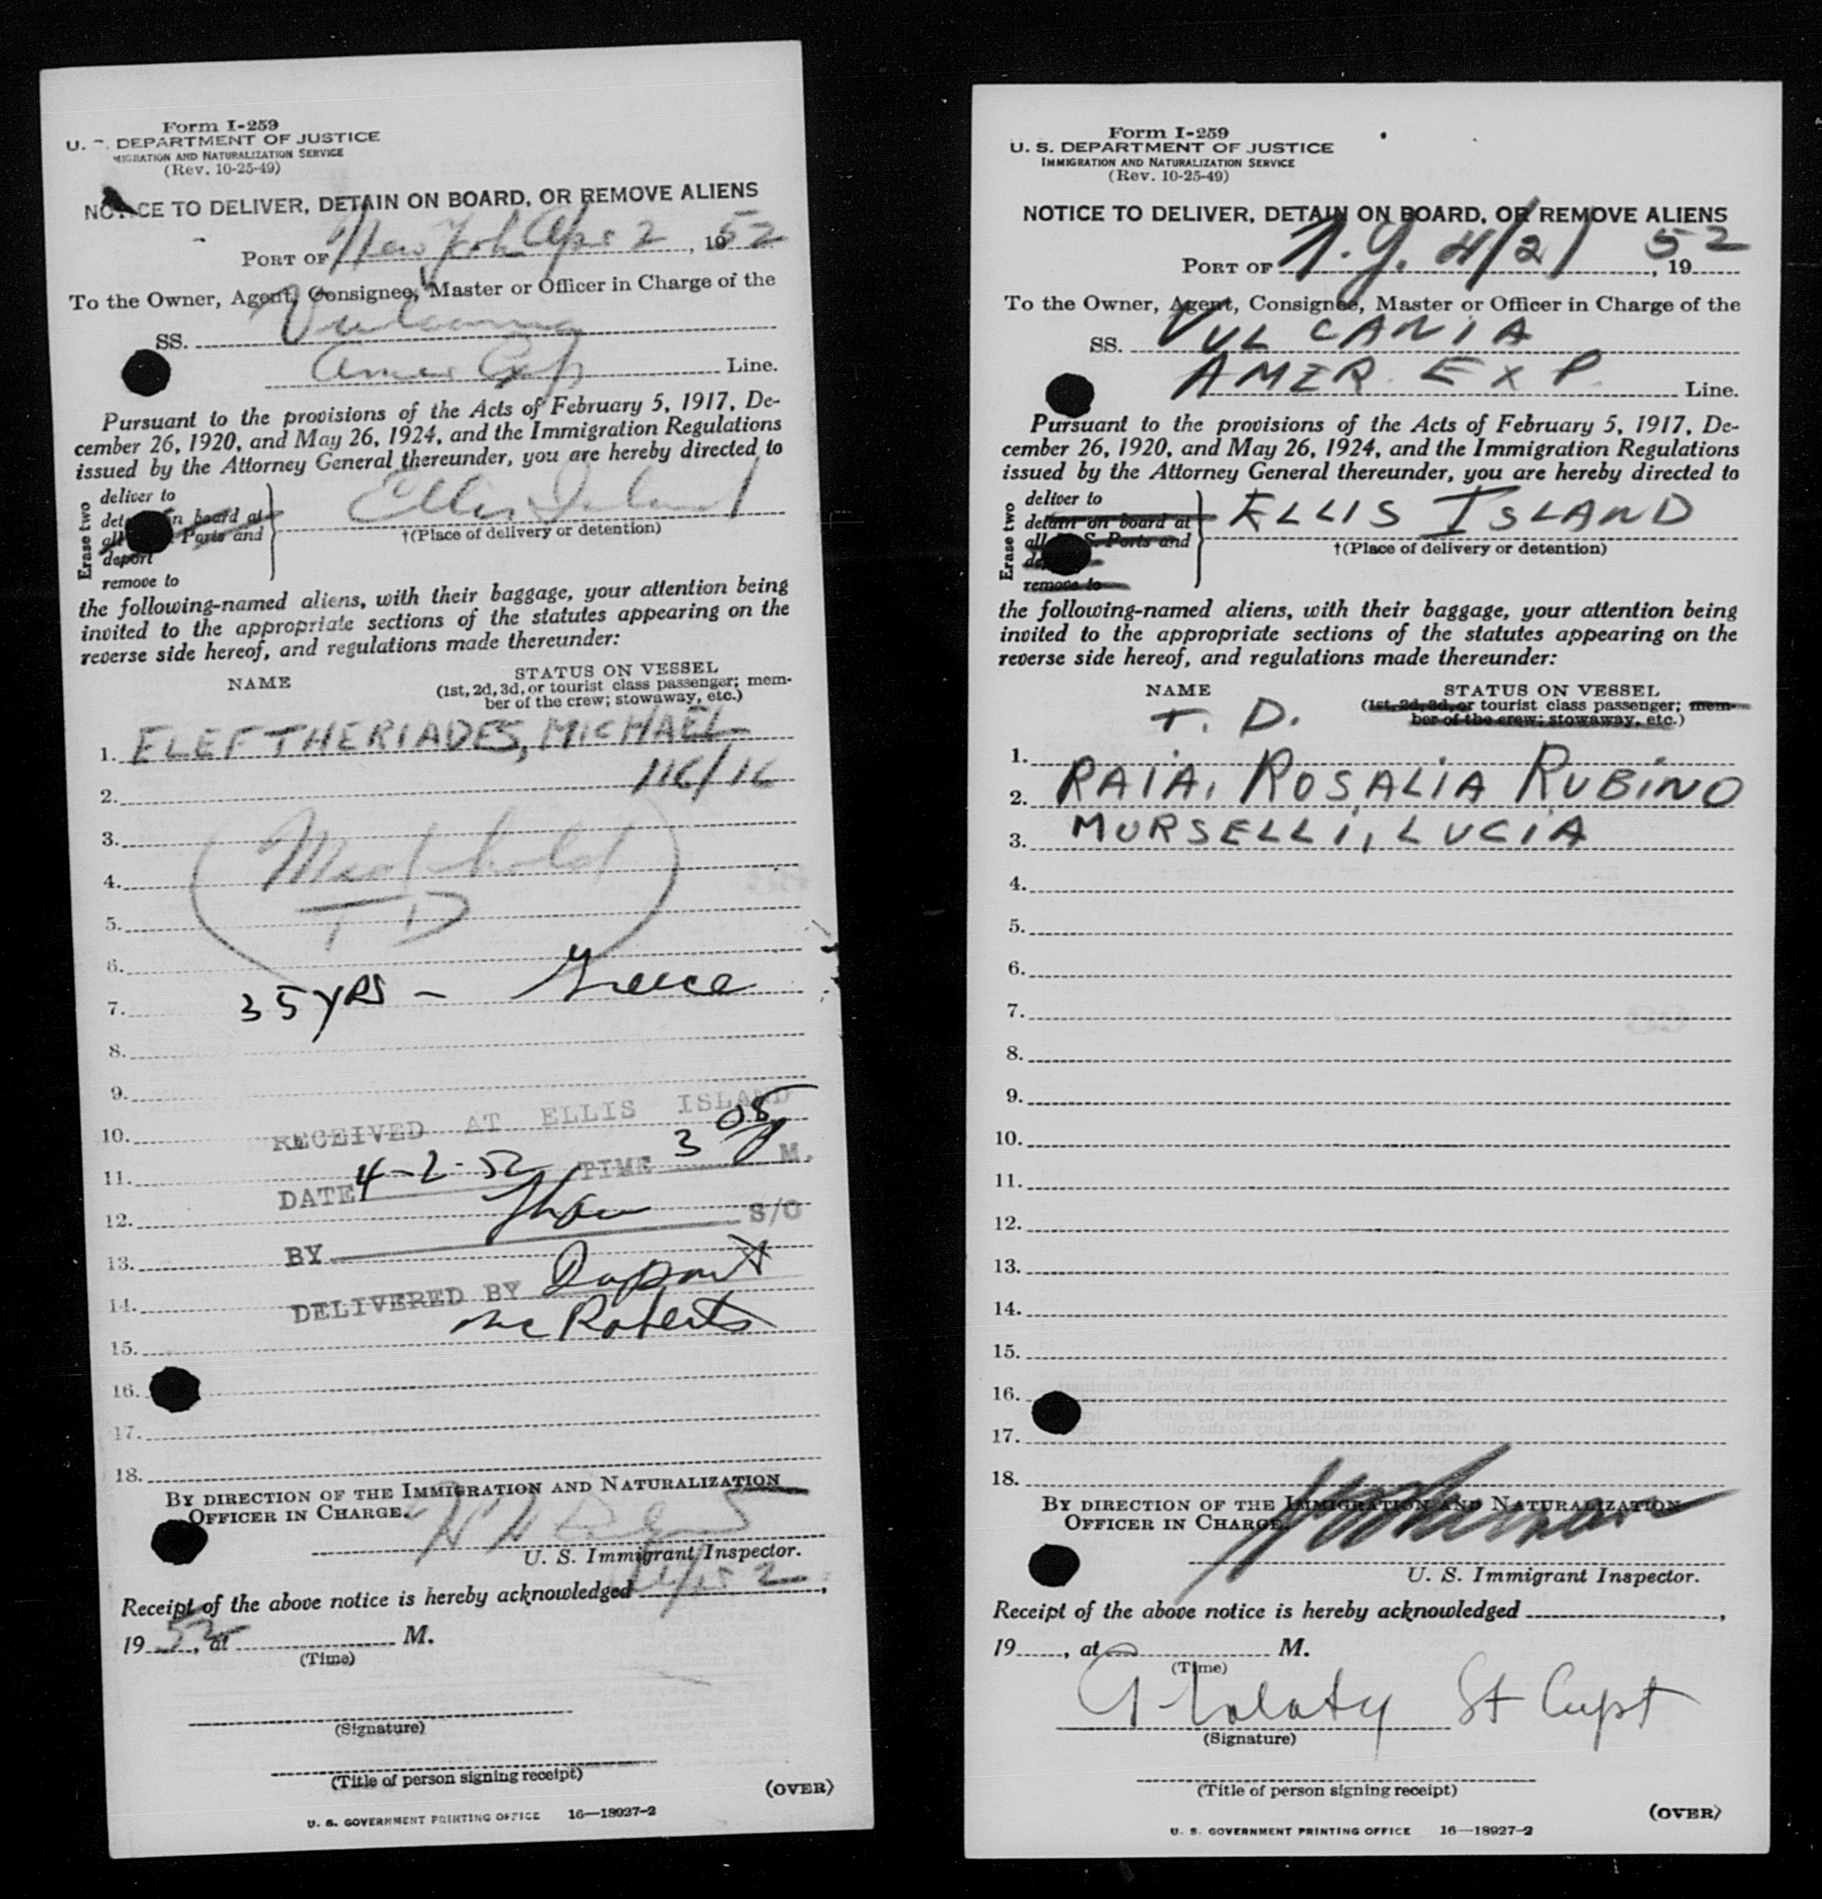 Form I-259
U. S. DEPARTMENT OF JUSTICE
MIGRATION AND NATURALIZATION SERVICE
(Rev. 10-25-49)
NOTICE TO DELIVER, DETAIN ON BOARD, OR REMOVE ALIENS
PORT OF New York Apr 2, 1952
To the Owner, Agent, Consignee, Master or Officer in Charge of the
SS. Vulcania
Amer Exp Line.
Pursuant to the provisions of the Acts of February 5, 1917, De-
cember 26, 1920, and May 26, 1924, and the Immigration Regulations
issued by the Attorney General thereunder, you are hereby directed to
Erase two
deliver to
detain on board at
all U. S. Ports and
deport
remove to
Ellis Island
†(Place of delivery or detention)
the following-named aliens, with their baggage, your attention being
invited to the appropriate sections of the statutes appearing on the
reverse side hereof, and regulations made thereunder:
NAME
STATUS ON VESSEL
(1st, 2d, 3d, or tourist class passenger; mem-
ber of the crew; stowaway, etc.)
1. ELEFTHERIADES, MICHAEL
2. 116/16
3.
4.
5. TD
6.
7. 35 YRS - Greece
8.
9.
10. RECEIVED AT ELLIS ISLAND
11. DATE 4-2-52 TIME 3 05 P M.
12.
BY S/O
13.
14. DELIVERED BY Dupont
Mc Roberts
15.
16.
17.
18.
BY DIRECTION OF THE IMMIGRATION AND NATURALIZATION
OFFICER IN CHARGE.
U. S. Immigrant Inspector.
Receipt of the above notice is hereby acknowledged Apr 2,
1952, at M.
(Time)
(Signature)
(Title of person signing receipt)
(OVER)
U. S. GOVERNMENT PRINTING OFFICE 16—18927-2
Form I-259
U. S. DEPARTMENT OF JUSTICE
IMMIGRATION AND NATURALIZATION SERVICE
(Rev. 10-25-49)
NOTICE TO DELIVER, DETAIN ON BOARD, OR REMOVE ALIENS
PORT OF N.Y. 4/2/, 1952
To the Owner, Agent, Consignee, Master or Officer in Charge of the
SS. VULCANIA
AMER. EXP. Line.
Pursuant to the provisions of the Acts of February 5, 1917, De-
cember 26, 1920, and May 26, 1924, and the Immigration Regulations
issued by the Attorney General thereunder, you are hereby directed to
Erase two
deliver to
detain on board at
all U. S. Ports and
deport
remove to
ELLIS ISLAND
†(Place of delivery or detention)
the following-named aliens, with their baggage, your attention being
invited to the appropriate sections of the statutes appearing on the
reverse side hereof, and regulations made thereunder:
NAME
STATUS ON VESSEL
(1st, 2d, 3d, or tourist class passenger; mem-
ber of the crew; stowaway, etc.)
T. D.
1.
2. RAIA, ROSALIA RUBINO
3. MURSELLI, LUCIA
4.
5.
6.
7.
8.
9.
10.
11.
12.
13.
14.
15.
16.
17.
18.
BY DIRECTION OF THE IMMIGRATION AND NATURALIZATION
OFFICER IN CHARGE.
U. S. Immigrant Inspector.
Receipt of the above notice is hereby acknowledged,
19, at M.
(Time)
(Signature)
(Title of person signing receipt)
(OVER)
U. S. GOVERNMENT PRINTING OFFICE 16—18927-2